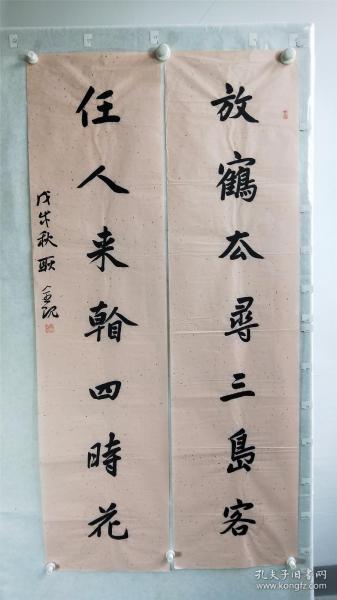 放鶴去尋三島客
任人来看四時花
戊戌秋 耿
孔夫子旧书网
www.kongfz.com